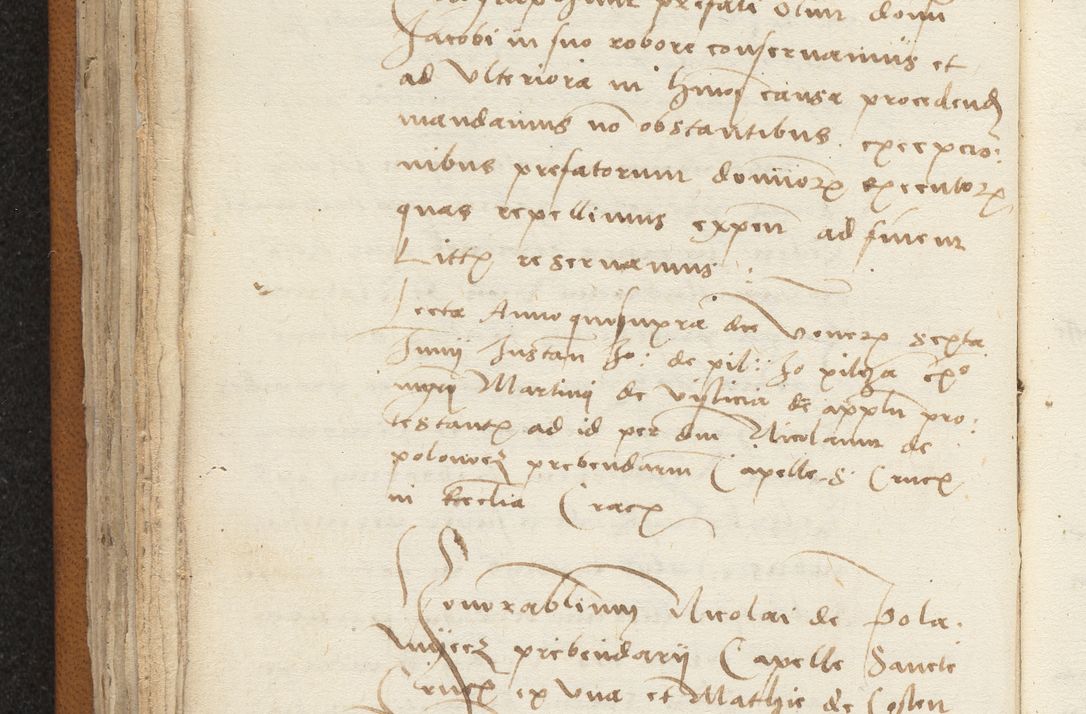 prefati olim domini
Jacobi in suo robore conservamus et
ad Ulteriora in hmoi causa procedend
mandamus no obstantibus exepcio:
nibus prefatorum domiorz executorz
quas repellimus expen ad finem
Littz reservamus
Lecta Anno quo supra die Venerz sexta
Junii Instan Jo: de pil: Jo pilcza
mgri Martini de Vislicia de applm pro:
testantz ad id per dm Nicolaum de
polowcz prebendarim Capelle S. Crucz
in Ecclia Cracz
Honorabilium Nicolai de Pola
wyecz prebendarii Capelle Sancte
Crucz ex Una et Mathie de Costen